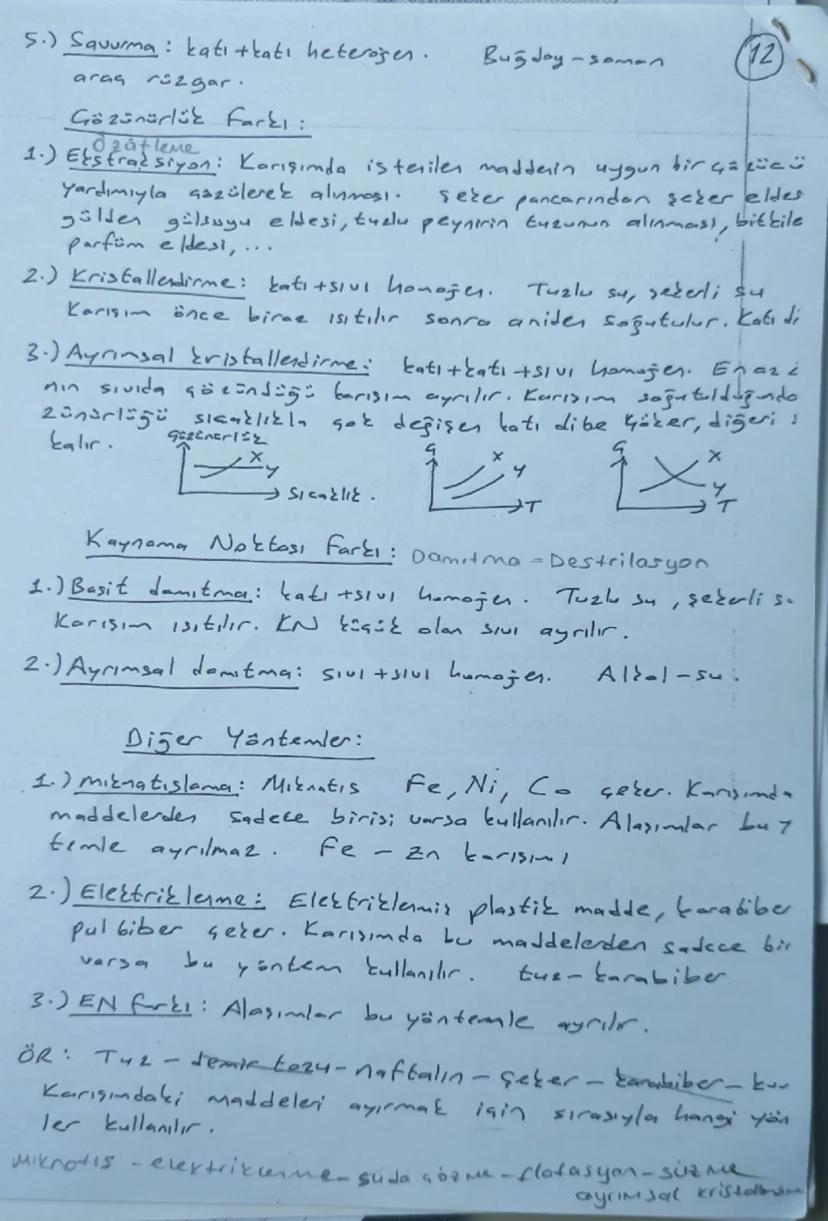 5.) Savurma : katı+katı heterojen. Buğday-saman
12
araç rüzgar.
Çözünürlük Farkı :
Özütleme
1.) Ekstraksiyon : Karışımda istenilen maddenin uygun bir çözücü
yardımıyla çözülerek alınması. Şeker pancarından şeker eldes
gülden gülsuyu eldesi, tuzlu peynirin tuzunun alınması, bitkile
parfüm eldesi, ...
2.) Kristallendirme : katı+sıvı homojen. Tuzlu su, şekerli su
Karışım önce biraz ısıtılır sonra aniden soğutulur. Katı di
3.) Ayrımsal kristallendirme : katı+katı+sıvı homojen. En az i
nın sıvıda çözündüğü karışım ayrılır. Karışım soğutulduğunda
zünürlüğü sıcaklıkla çok değişen katı dibe çöker, diğeri
kalır.
Çözünürlük X Y Sıcaklık.
Ç X Y T
Ç X Y T
Kaynama Noktası Farkı : Damıtma = Destrilasyon
1.) Basit damıtma : katı+sıvı homojen. Tuzlu su, şekerli s
Karışım ısıtılır. KN küçük olan sıvı ayrılır.
2.) Ayrımsal damıtma : sıvı+sıvı homojen. Alkol-su.
Diğer Yöntemler :
1.) Mıknatıslama : Mıknatıs Fe, Ni, Co çeker. Karışımda
maddelerden sadece birisi varsa kullanılır. Alaşımlar bu y
temle ayrılmaz. Fe - Zn karışımı
2.) Elektriklenme : Elektriklenmiş plastik madde, karabiber
pul biber çeker. Karışımda bu maddelerden sadece bir
varsa bu yöntem kullanılır. tuz-karabiber
3.) EN farkı : Alaşımlar bu yöntemle ayrılır.
ÖR : Tuz - demir tozu - naftalin - şeker - karabiber - kum
Karışımdaki maddeleri ayırmak için sırasıyla hangi yön
ler kullanılır.
Mıknatıs - elektriklenme - suda çözme - flotasyon - süzme
ayrımsal kristallen